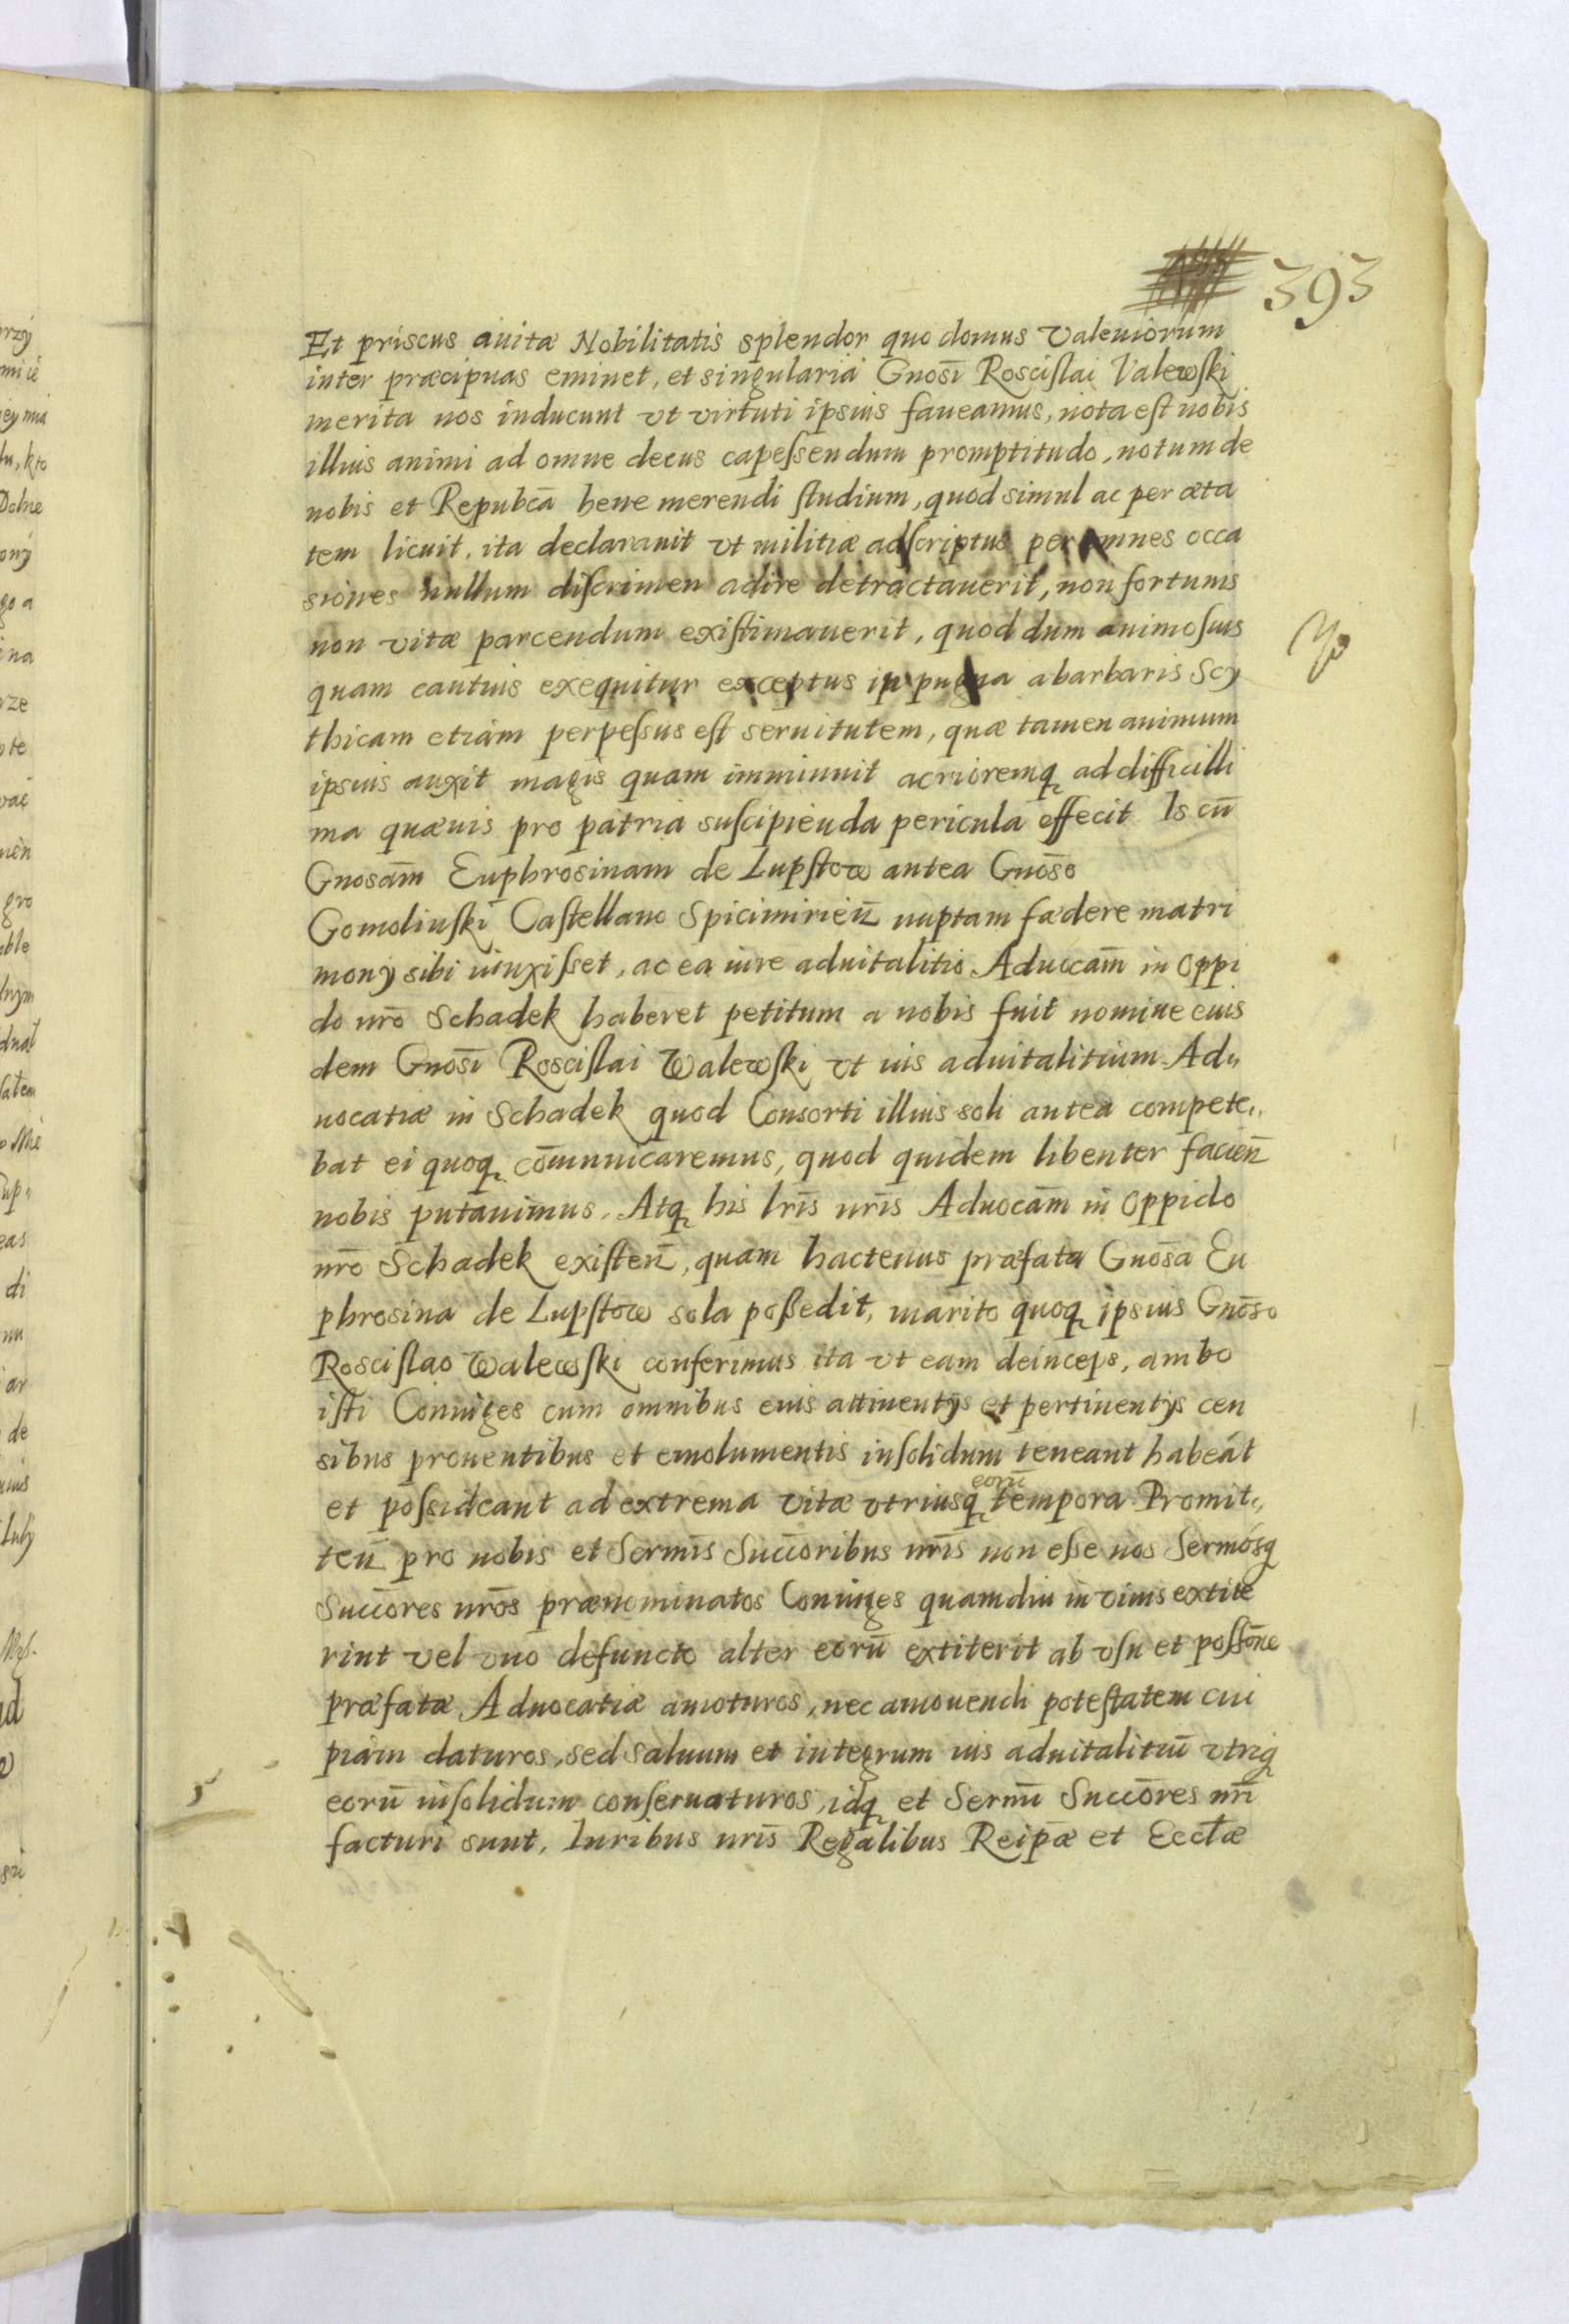 393
Et priscus auitæ Nobilitatis splendor quo domus Valeuiorum
inter præcipuas eminet, et singularia Gnosī Roscislai Valewski
merita nos inducunt vt virtuti ipsius faueamus, nota est nobis
illius animi ad omne decus capessendum promptitudo, notum de
nobis et Repubcā bene merendi studium, quod simul ac per æta
tem licuit, ita declarauit vt militiæ adscriptus per omnes occa
siones nullum discrimen adire detractauerit, non fortunis
non vitæ parcendum existimauerit, quod dum animosius
quam cautius exequitur exceptus in pugna a barbaris Scy
thicam etiam perpessus est seruitutem, quæ tamen animum
ipsius auxit magis quam imminuit acrioremq ad difficilli
ma quæuis pro patria suscipienda pericula effecit. Is cū
Gnosām Euphrosinam de Lupstow antea Gnōso
Gomolinski Castellano Spicimirień nuptam fædere matri
monÿ sibi iunxisset, ac ea iure aduitalitio Aduocām in Oppi
do nrō Schadek haberet petitum a nobis fuit nomine eius
dem Gnosī Roscislai Walewski vt ius aduitalitium Ad„
uocatiæ in Schadek quod Consorti illius soli antea compete„
bat ei quoq cōmunicaremus, quod quidem libenter facień
nobis putauimus. Atq his lrīs nrīs Aduocām in Oppido
nrō Schadek existeń, quam hactenus præfata Gnōsa Eu
phrosina de Lupstow sola poßedit, marito quoq ipsius Gnōso
Roscislao Walewski conferimus ita vt eam deinceps, ambo
isti Coniuges cum omnibus eius attinentÿs et pertinentÿs cen
sibus prouentibus et emolumentis insolidum teneant habeāt
et possideant ad extrema vitæ vtriusq eorū tempora. Promit„
teń pro nobis et Sermīs Succoribus nrīs non esse nos Sermosq
Succōres nrōs prænominatos Coniuges quamdiu in viuis extite
rint vel vno defuncto alter eorū extiterit ab vsu et possōne
præfatæ Aduocatiæ amoturos, nec amouendi potestatem cui
piam daturos, sed saluum et integrum ius aduitalitiū vtriq
eorū insolidum conseruaturos, idq et Sermī Succōres nrī
facturi sunt. Iuribus nrīs Regalibus Reipæ et Ecclæ